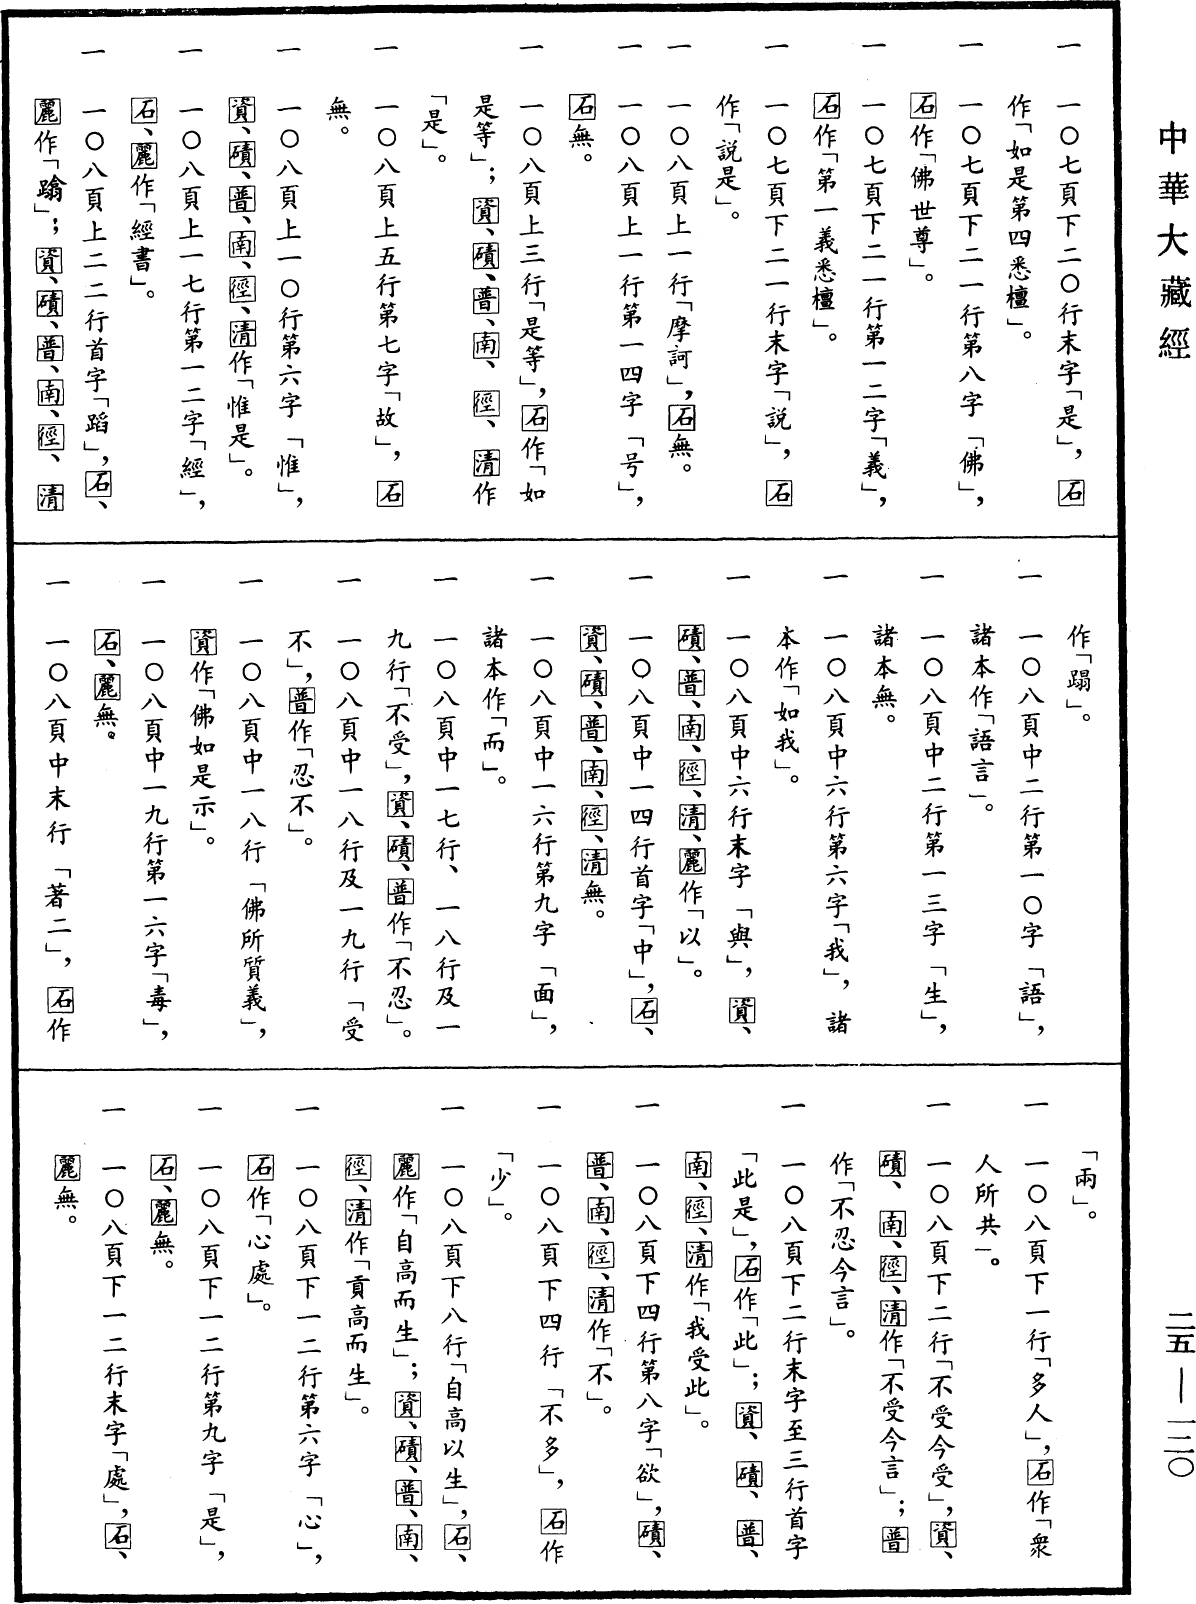 中華大藏經
一　一〇七頁下二〇行末字「是」，石
作「如是第四悉檀」。
一　一〇七頁下二一行第八字「佛」，
石作「佛世尊」。
一　一〇七頁下二一行第一二字「義」，
石作「第一義悉檀」。
一　一〇七頁下二一行末字「說」，石
作「說是」。
一　一〇八頁上一行「摩訶」，石無。
一　一〇八頁上一行第一四字「号」，
石無。
一　一〇八頁上三行「是等」，石作「如
是等」；資、磧、普、南、徑、清作
「是」。
一　一〇八頁上五行第七字「故」，石
無。
一　一〇八頁上一〇行第六字「惟」，
資、磧、普、南、徑、清作「惟是」。
一　一〇八頁上一七行第一二字「經」，
石、麗作「經書」。
一　一〇八頁上二二行首字「蹈」，石、
麗作「蹹」；資、磧、普、南、徑、清
作「蹋」。
一　一〇八頁中二行第一〇字「語」，
諸本作「語言」。
一　一〇八頁中二行第一三字「生」，
諸本無。
一　一〇八頁中六行第六字「我」，諸
本作「如我」。
一　一〇八頁中六行末字「與」，資、
磧、普、南、徑、清、麗作「以」。
一　一〇八頁中一四行首字「中」，石、
資、磧、普、南、徑、清無。
一　一〇八頁中一六行第九字「面」，
諸本作「而」。
一　一〇八頁中一七行、一八行及一
九行「不受」，資、磧、普作「不忍」。
一　一〇八頁中一八行及一九行「受
不」，普作「忍不」。
一　一〇八頁中一八行「佛所質義」，
資作「佛如是示」。
一　一〇八頁中一九行第一六字「毒」，
石、麗無。
一　一〇八頁中末行「著二」，石作
「兩」。
一　一〇八頁下一行「多人」，石作「衆
人所共」。
一　一〇八頁下二行「不受今受」，資、
磧、南、徑、清作「不受今言」；普
作「不忍今言」。
一　一〇八頁下二行末字至三行首字
「此是」，石作「此」；資、磧、普、
南、徑、清作「我受此」。
一　一〇八頁下四行第八字「欲」，磧、
普、南、徑、清作「不」。
一　一〇八頁下四行「不多」，石作
「少」。
一　一〇八頁下八行「自高以生」，石、
麗作「自高而生」；資、磧、普、南、
徑、清作「貢高而生」。
一　一〇八頁下一二行第六字「心」，
石作「心處」。
一　一〇八頁下一二行第九字「是」，
石、麗無。
一　一〇八頁下一二行末字「處」，石、
麗無。
二五—一二〇